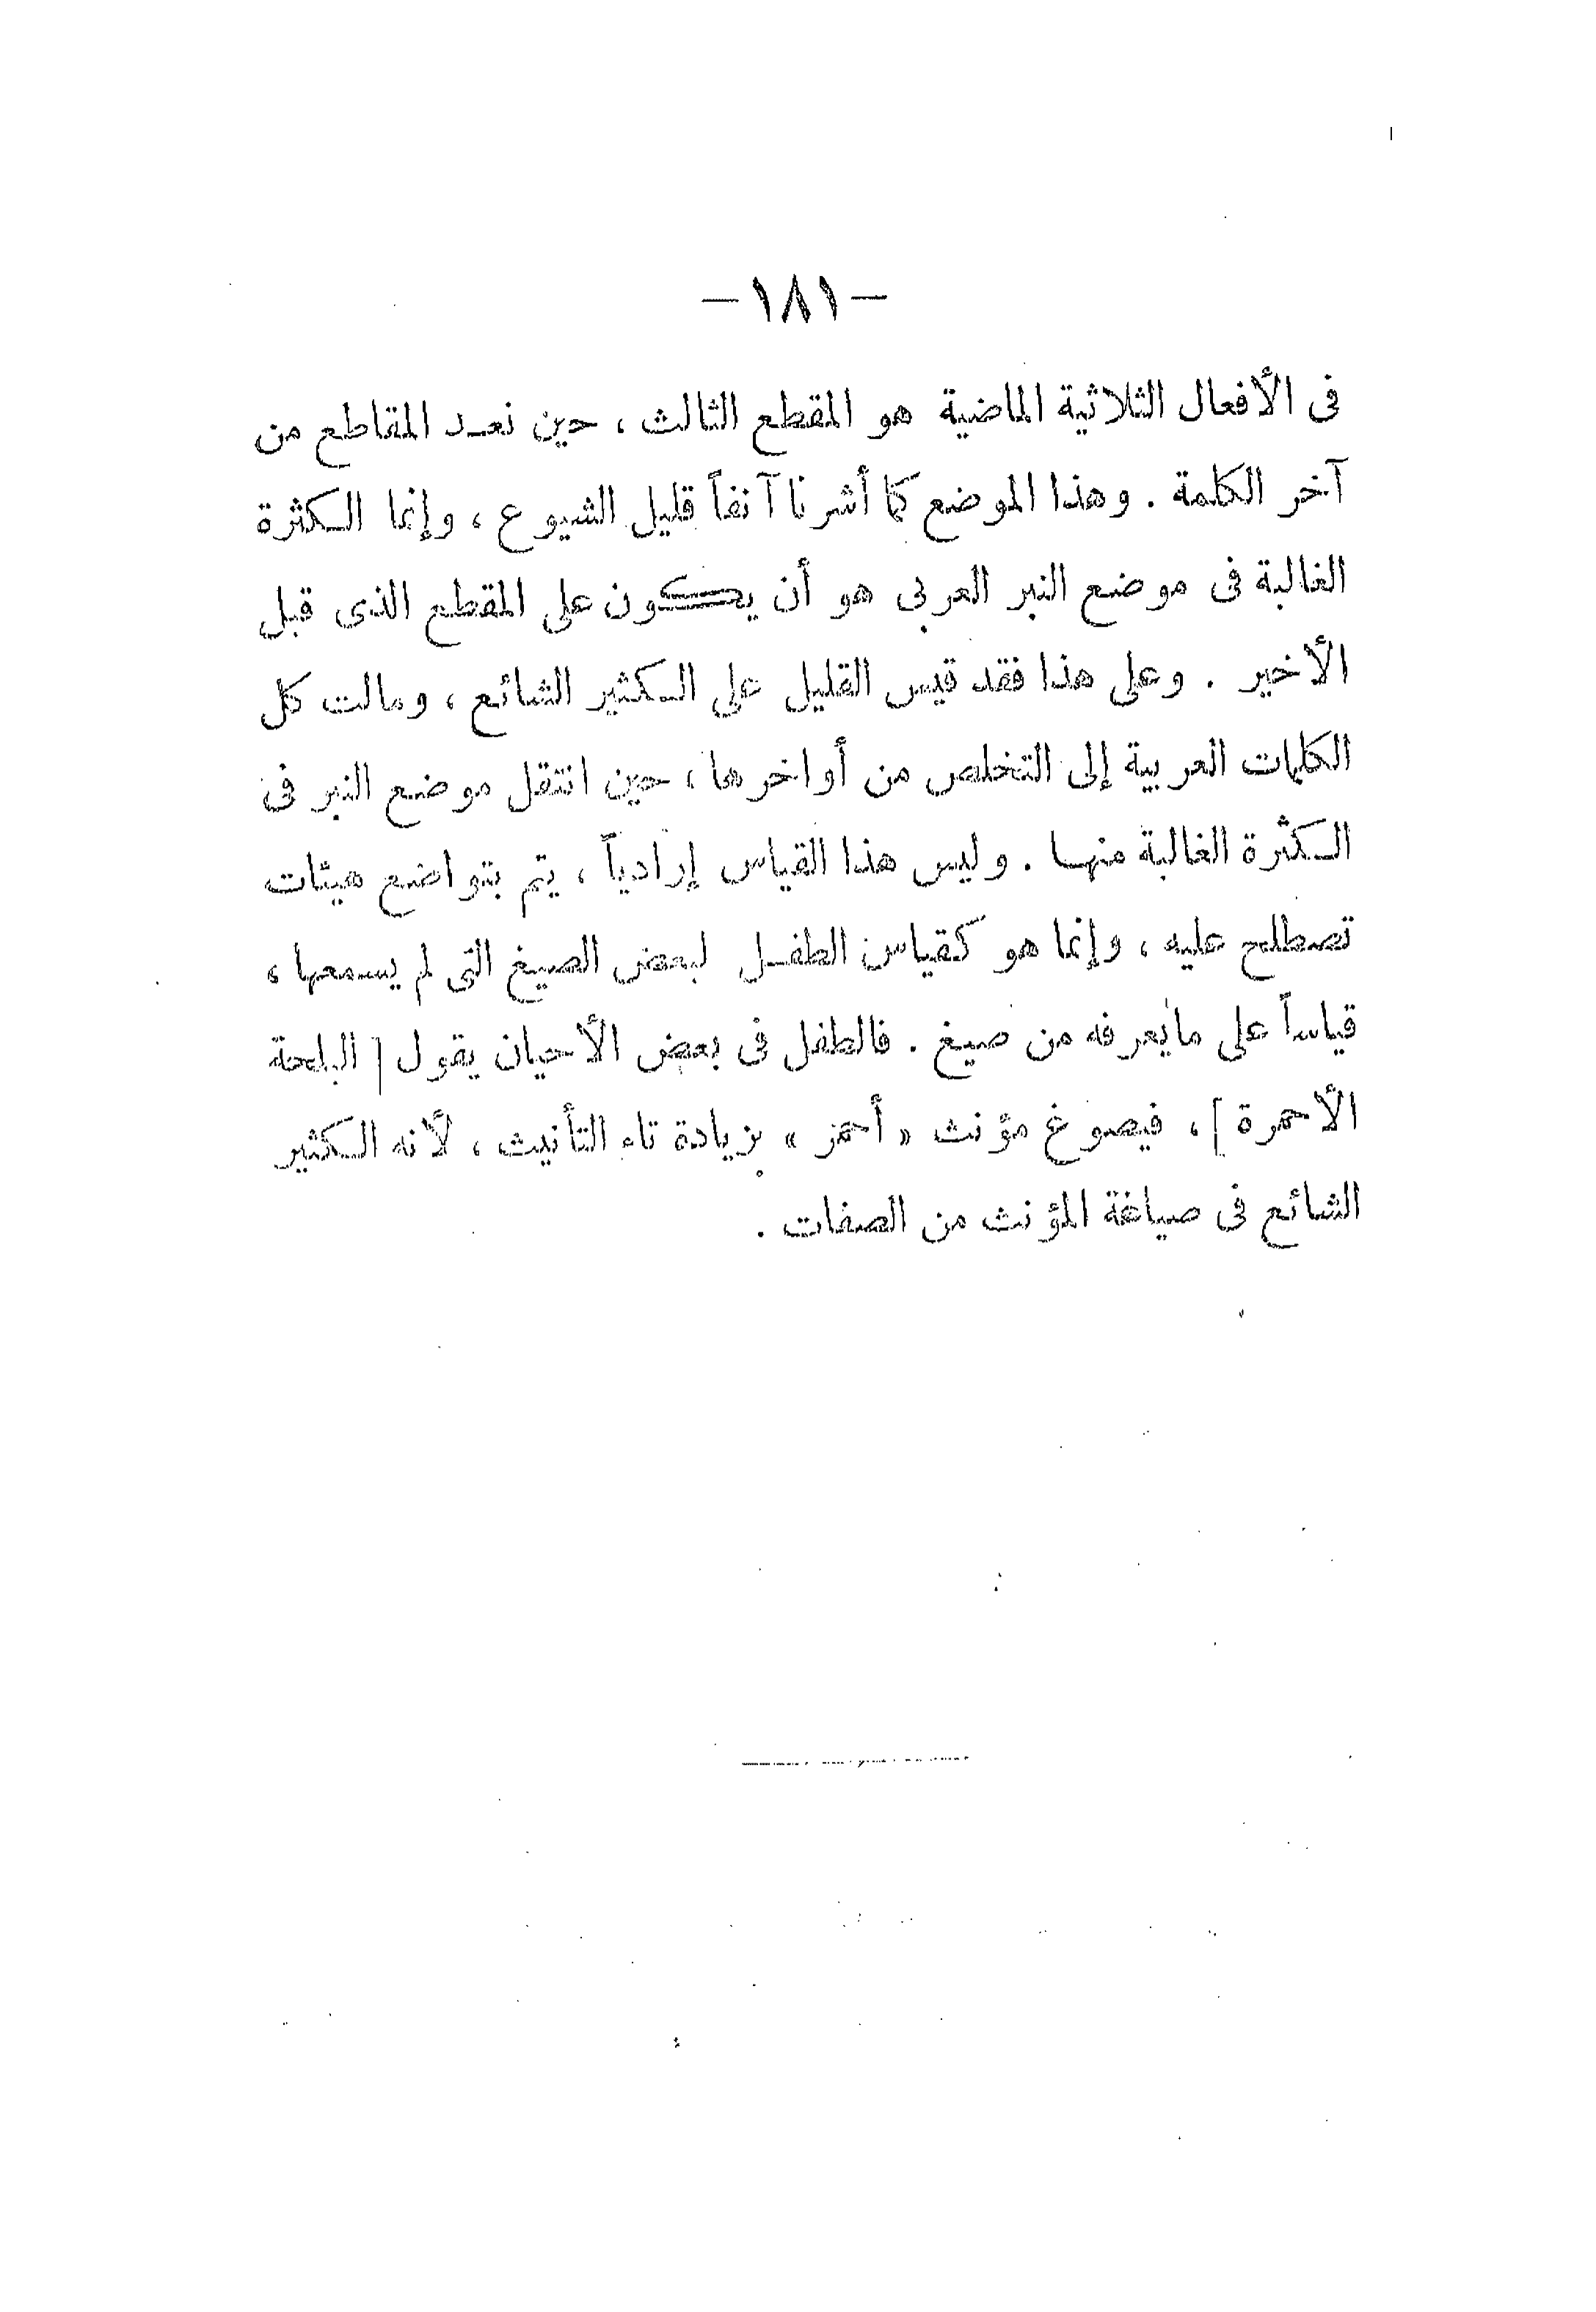 — ١٨١ —
فى الأفعال الثلاثية الماضية هو المقطع الثالث ، حين نعد المقاطع من
آخر الكلمة . وهذا الموضع كما أشرنا آنفاً قليل الشيوع ، وإنما الكثرة
الغالبة فى موضع النبر العربى هو أن يكون على المقطع الذى قبل
الأخير . وعلى هذا فقد قيس القليل على الكثير الشائع ، ومالت كل
الكلمات العربية إلى التخلص من أواخرها ، حين انتقل موضع النبر فى
الكثرة الغالبة منها . وليس هذا القياس إرادياً ، يتم بتواضع هيئات
تصطلح عليه ، وإنما هو كقياس الطفل لبعض الصيغ التى لم يسمعها ،
قياساً على ما يعرفه من صيغ . فالطفل فى بعض الأحيان يقول [ البلحة
الأحمرة ] ، فيصوغ مؤنث « أحمر » بزيادة تاء التأنيث ، لأنه الكثير
الشائع فى صياغة المؤنث من الصفات .